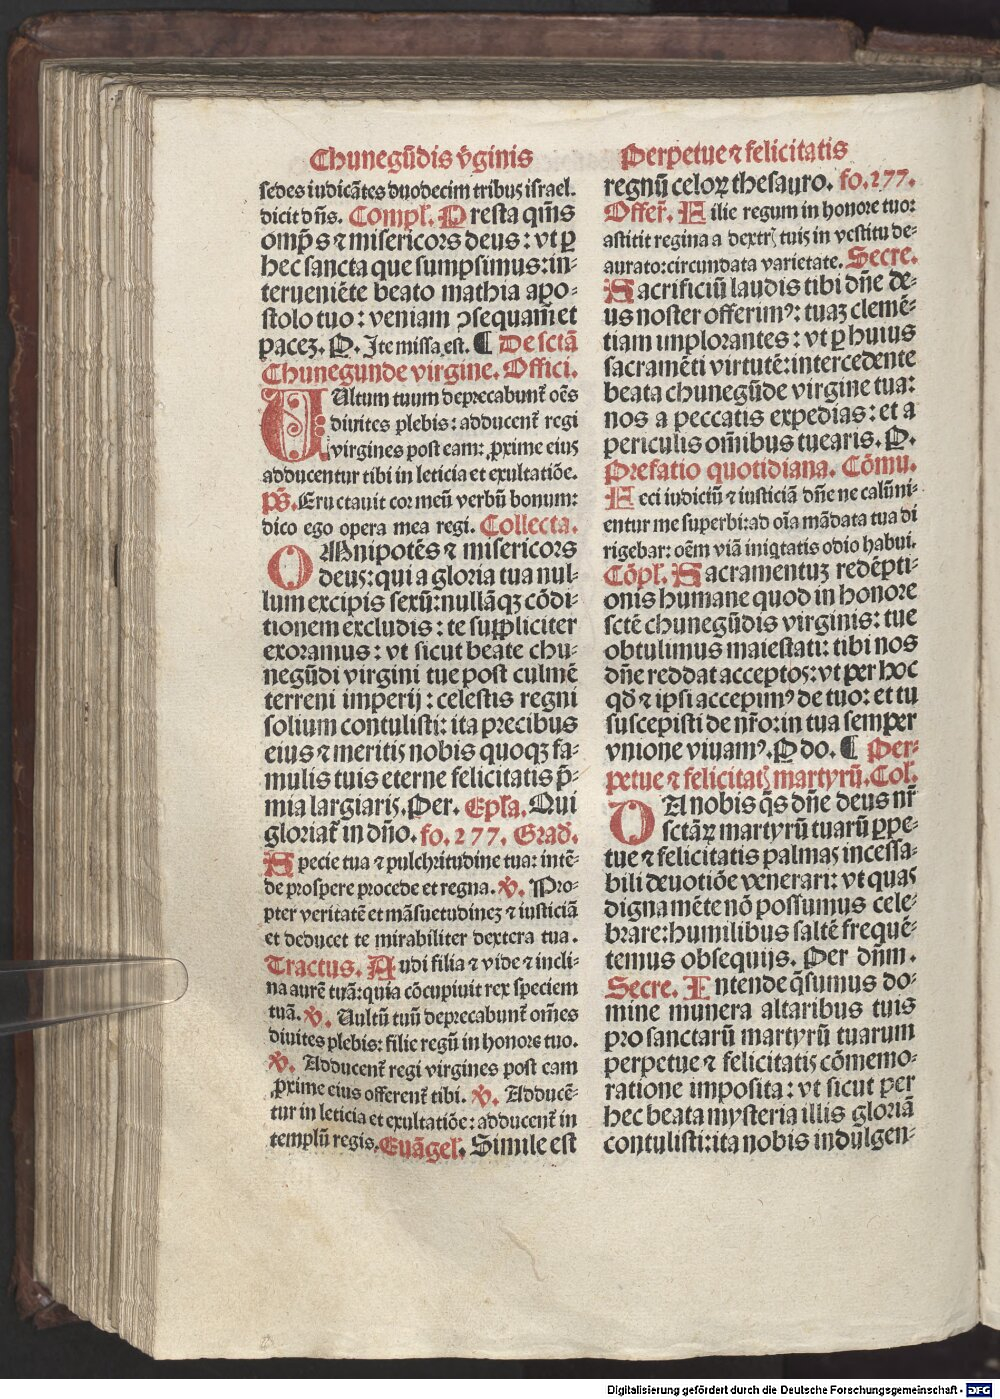 Chunegūdis v̄ginis
sedes iudicātes duodecim tribus israel.
dicit dn̄s. Compl̄. Presta qm̄s
omp̄s ⁊ misericors deus: vt ꝑ
hec sancta que sumpsimus: in-
terueniēte beato mathia apo-
stolo tuo: veniam ꝯsequam̄ et
pacez. P. Ite missa est. ¶ De sctā
Chunegunde virgine. Offici.
Vultum tuum deprecabunt̄ oēs
diuites plebis: adducent̄ regi
virgines post eam: ꝓxime eius
adducentur tibi in leticia et exultatiōe.
ps̄. Eructauit cor meū verbū bonum:
dico ego opera mea regi. Collecta.
OMnipotēs ⁊ misericors
deus: qui a gloria tua nul-
lum excipis sexū: nullāqz cōdi-
tionem excludis: te suppliciter
exoramus: vt sicut beate chu-
negūdi virgini tue post culmē
terreni imperij: celestis regni
solium contulisti: ita precibus
eius ⁊ meritis nobis quoqz fa-
mulis tuis eterne felicitatis p̄-
mia largiaris. Per. Epl̄a. Qui
gloriat̄ in dn̄o. fo. 277. Grad̄.
Specie tua ⁊ pulchritudine tua: intē-
de prospere procede et regna. v̄. Pro-
pter veritatē et māsuetudinez ⁊ iusticiā
et deducet te mirabiliter dextera tua.
Tractus. Audi filia ⁊ vide ⁊ incli-
na aurē tuā: quia cōcupiuit rex speciem
tuā. v̄. Uultū tuū deprecabunt̄ om̄es
diuites plebis: filie regū in honore tuo.
v̄. Adducent̄ regi virgines post eam
ꝓxime eius offerent̄ tibi. v̄. Adducē-
tur in leticia et exultatiōe: adducent̄ in
templū regis. Euāgel̄. Simile est
Perpetue ⁊ felicitatis
regnū celoꝝ thesauro. fo. 277.
Offer̄. Filie regum in honore tuo:
astitit regina a dextr̄ tuis in vestitu de-
aurato: circundata varietate. Secre.
Sacrificiū laudis tibi dn̄e de-
us noster offerimꝰ: tuaz clemē-
tiam implorantes: vt ꝑ huius
sacramēti virtutē: intercedente
beata chunegūde virgine tua:
nos a peccatis expedias: et a
periculis om̄ibus tuearis. P.
Prefatio quotidiana. Cōmu.
Feci iudiciū ⁊ iusticiā dn̄e ne calūni-
entur me superbi: ad oīa mādata tua di
rigebar: oēm viā iniqtatis odio habui.
Cōpl̄. Sacramentuz redēpti-
onis humane quod in honore
sctē chunegūdis virginis: tue
obtulimus maiestati: tibi nos
dn̄e reddat acceptos: vt per hoc
qd̄ ⁊ ipsi accepimꝰ de tuo: et tu
suscepisti de nr̄o: in tua semper
vnione viuamꝰ. P do. ¶ Per-
petue ⁊ felicitat̄ martyrū. Col̄.
DA nobis q̄s dn̄e deus nr̄
sctāꝝ martyrū tuarū ꝑpe-
tue ⁊ felicitatis palmas incessa-
bili deuotiōe venerari: vt quas
digna mēte nō possumus cele-
brare: humilibus saltē frequē-
temus obsequijs. Per dn̄m.
Secre. Intende q̄sumus do-
mine munera altaribus tuis
pro sanctarū martyrū tuarum
perpetue ⁊ felicitatis cōmemo-
ratione imposita: vt sicut per
hec beata mysteria illis gloriā
contulisti: ita nobis indulgen-
Digitalisierung gefördert durch die Deutsche Forschungsgemeinschaft - DFG